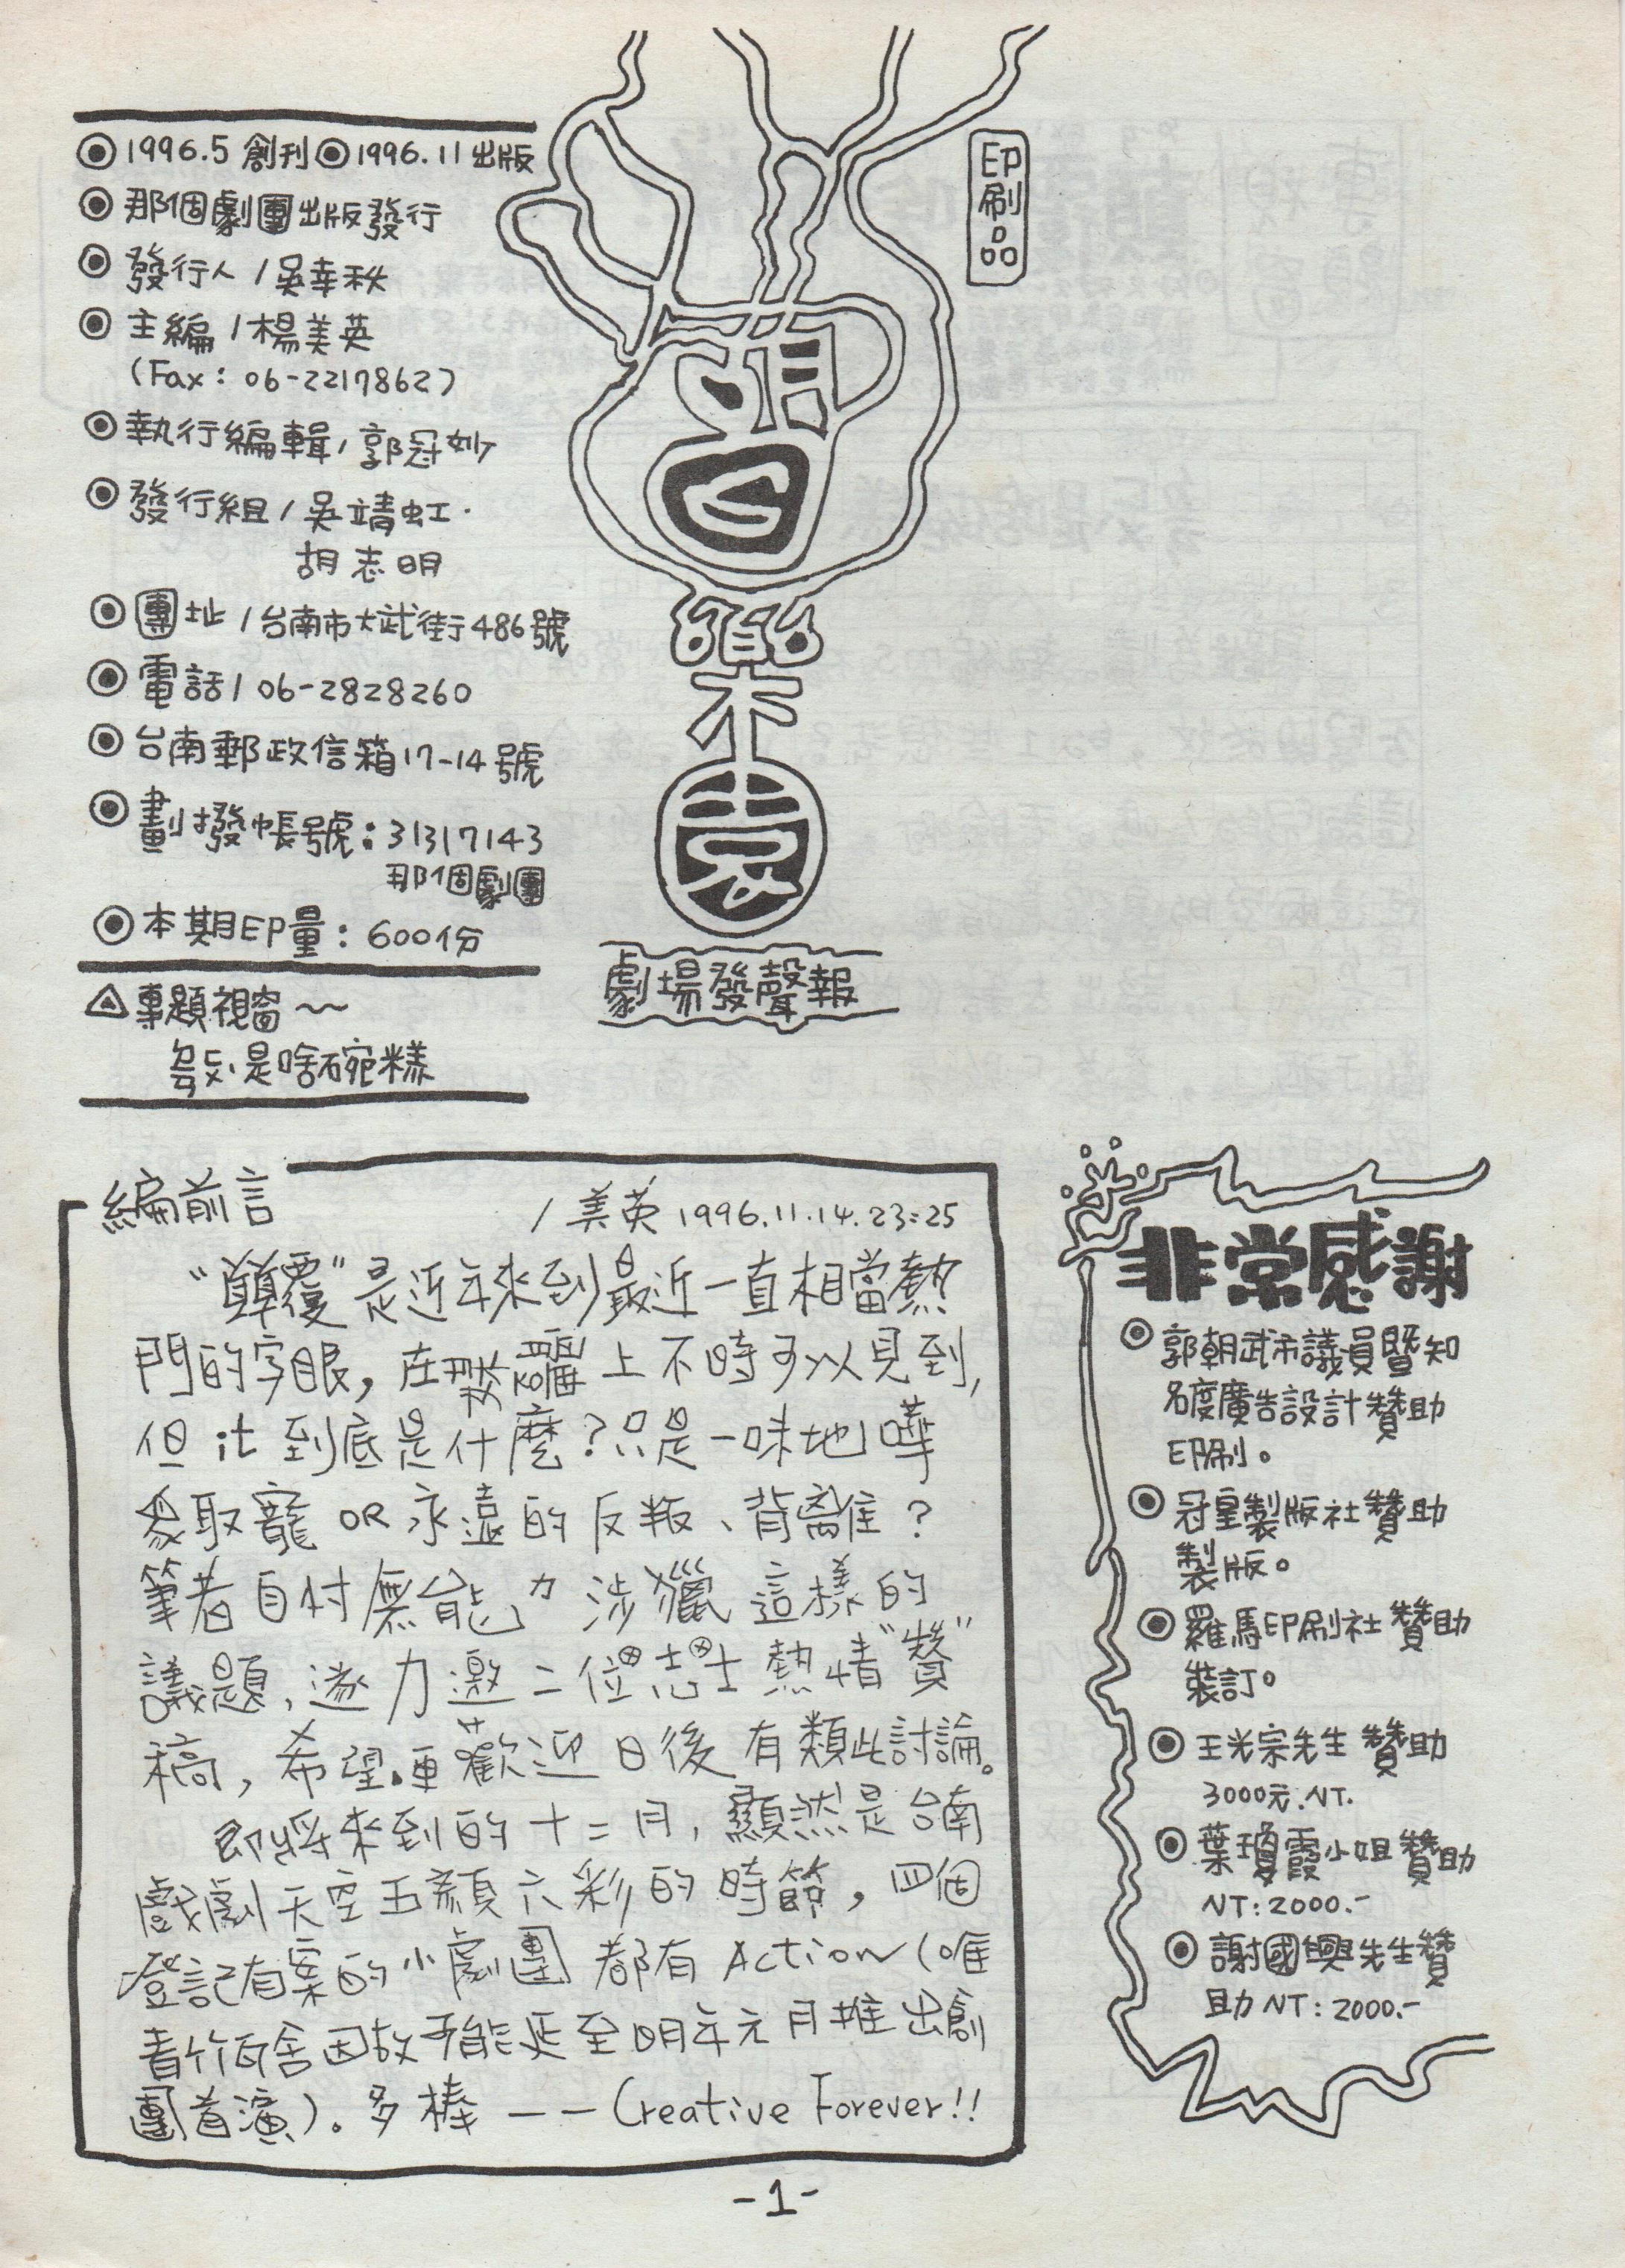 ◉1996.5 創刊◉1996.11出版
◉那個劇團出版發行
◉發行人/吳幸秋
◉主編/楊美英
(Fax: 06-2217862)
◉執行編輯/郭冠妙
◉發行組/吳靖虹·
胡志明
◉團址/台南市大武街486號
◉電話/06-2828260
◉台南郵政信箱17-14號
◉劃撥帳號:31317143
那個劇團
◉本期印量:600份
專題視窗~
是啥碗糕
印刷品
劇場發聲報
編前言
/美英 1996.11.14.23:25
“顛覆”是近年來到最近一直相當熱
門的字眼,在上不時可以見到,
但it到底是什麼?只是一味地嘩
眾取寵OR永遠的反叛、背離?
筆者自忖無能力涉獵這樣的
議題,遂力邀二位志士熱情“贊”
稿,希望.更歡迎日後有類此討論。
即將來到的十二月,顯然是台南
戲劇天空五顏六彩的時節,四個
登記有案的小劇團都有Action(唯
青竹瓦舍因故可能延至明年元月推出創
團首演)。多棒——Creative Forever!!
非常感謝
◉郭朝武市議員暨知
名度廣告設計贊助
印刷。
◉冠皇製版社贊助
製版。
◉羅馬印刷社贊助
裝訂。
◉王光宗先生贊助
3000元.NT.
◉葉瓊霞小姐贊助
NT:2000.-
◉謝國興先生贊
助NT:2000.-
-1-